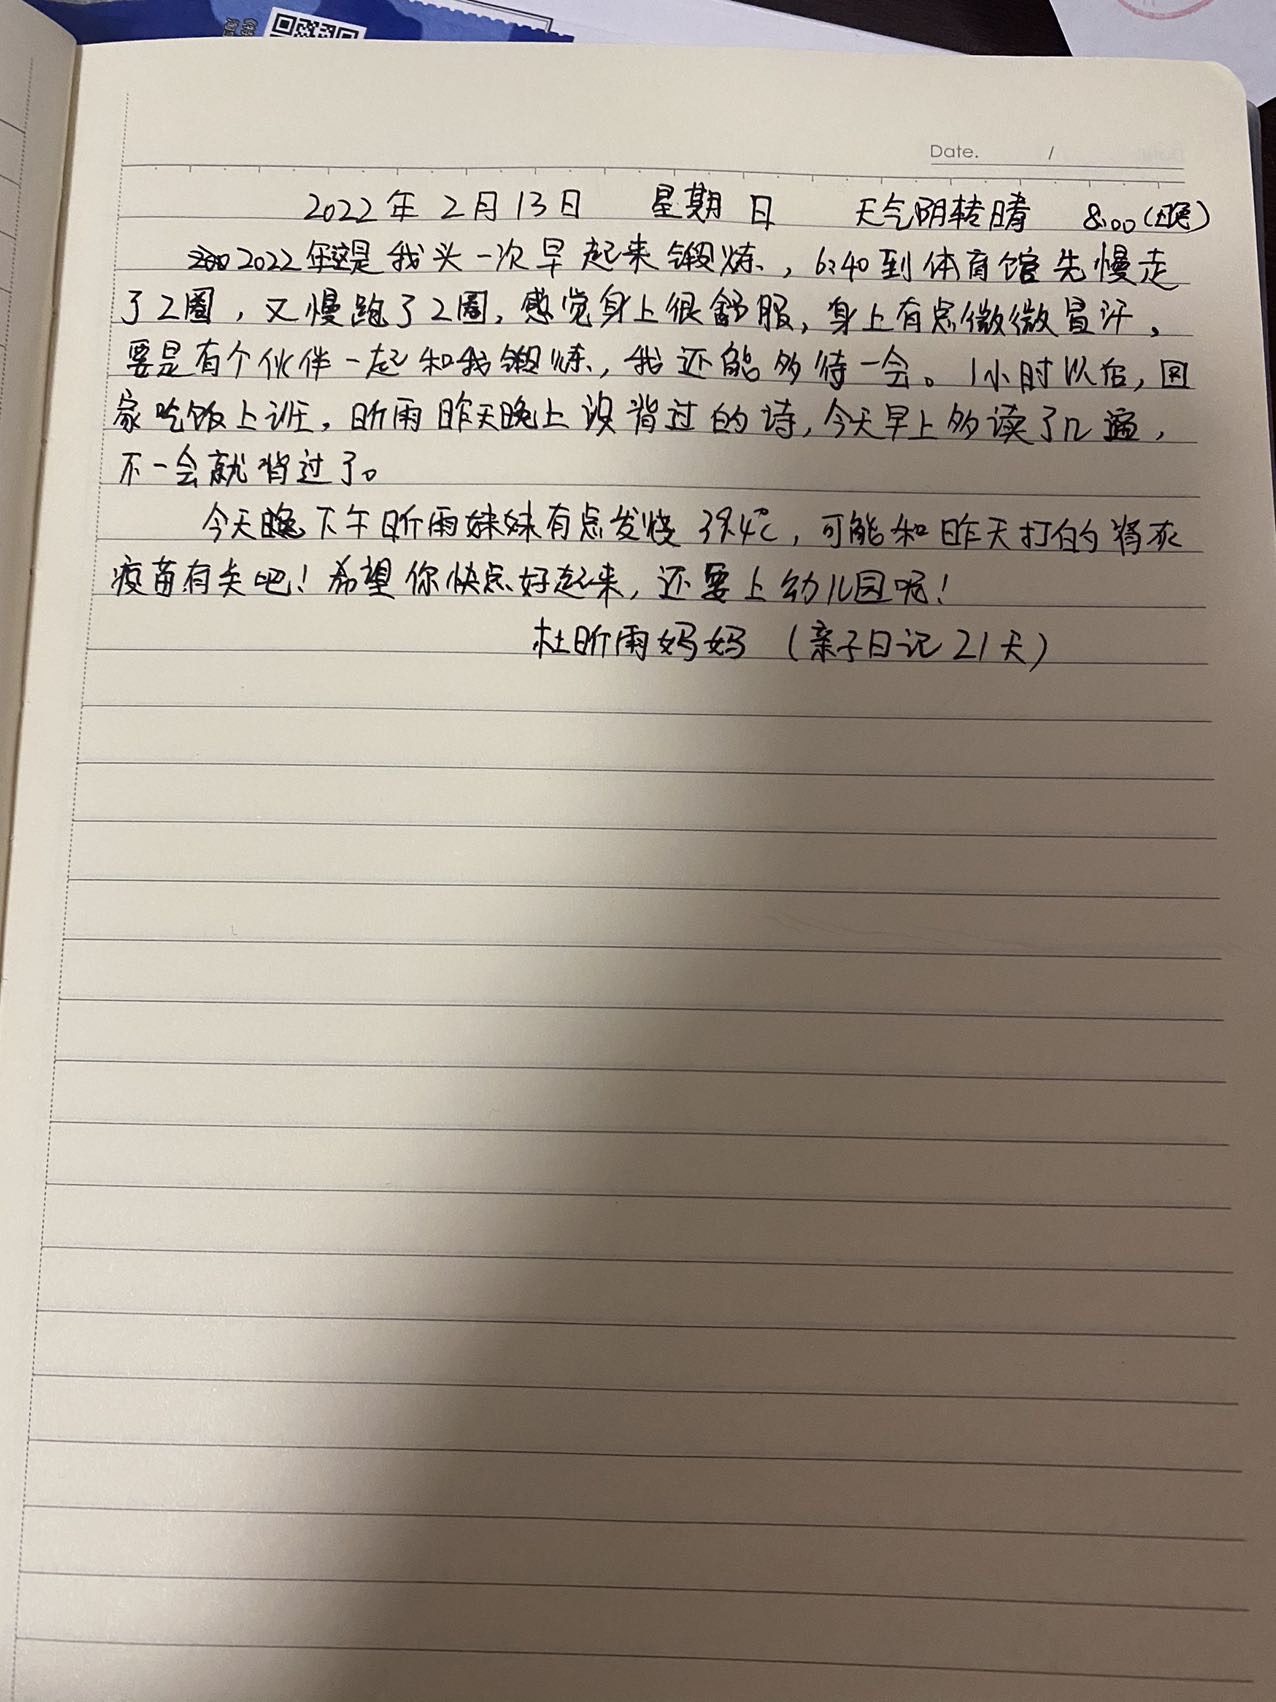 Date. /
2022年2月13日 星期日 天气阴转晴 8:00(晚)
2022年这是我头一次早起来锻炼,6:40到体育馆先慢走
了2圈,又慢跑了2圈,感觉身上很舒服,身上有点微微冒汗,
要是有个伙伴一起和我锻炼,我还能多待一会。1小时以后,回
家吃饭上班,昕雨昨天晚上没背过的诗,今天早上多读了几遍,
不一会就背过了。
今天下午昕雨妹妹有点发烧 39.4℃,可能和昨天打的
疫苗有关吧!希望你快点好起来,还要上幼儿园呢!
杜昕雨妈妈 (亲子日记21天)